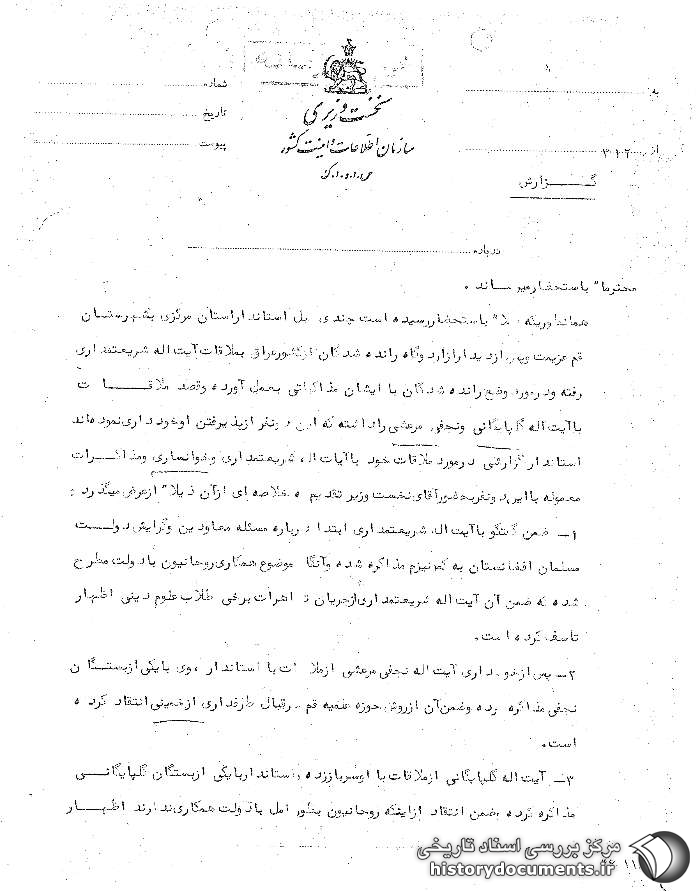 به:
شماره
نخست وزیری
تاریخ
سازمان اطلاعات و امنیت کشور
از ۳۱۲
پیوست
س.ا.و.ا.ک
گــزارش
درباره
محترما" باستحضار میرساند.
همانطوریکه قبلا" باستحضار رسیده است چندی قبل استاندار استان مرکزی بشهرستان
قم عزیمت وپس از دیدار از اردوگاه رانده شدگان از کشور عراق بملاقات آیت اله شریعتمداری
رفته ودر مورد وضع رانده شدگان با ایشان مذاکراتی بعمل آورده وقصد ملاقات
با آیت اله گلپایگانی ونجفی مرعشی را داشته که این دو نفر از پذیرفتن او خودداری نموده اند
استاندار گزارشی در مورد ملاقات خود با آیات اله شریعتمداری و خوانساری ومذاکرات
معموله با این دو نفر بحضور آقای نخست وزیر تقدیم که خلاصه ای از آن ذیلا" از عرض میگذرد
۱- ضمن گفتگو با آیت اله شریعتمداری ابتدا درباره مسئله معاودین وگرایش دولت
مسلمان افغانستان به کمونیزم مذاکره شده وآنگاه موضوع همکاری روحانیون با دولت مطرح
شده که ضمن آن آیت اله شریعتمداری از جریان تظاهرات برخی طلاب علوم دینی اظهار
تاسف کرده است.
۲- پس از خودداری آیت اله نجفی مرعشی از ملاقات با استاندار، وی با یکی از بستگان
نجفی مذاکره کرده وضمن آن از روش حوزه علمیه قم در قبال طرفداری از خمینی انتقاد کرده
است.
۳- آیت اله گلپایگانی از ملاقات با او سر باز زده و استاندار با یکی از بستگان گلپایگانی
مذاکره کرده وضمن انتقاد از اینکه روحانیون بطور کامل با دولت همکاری ندارند اظهار
مرکز بررسی اسناد تاریخی
historydocuments.ir